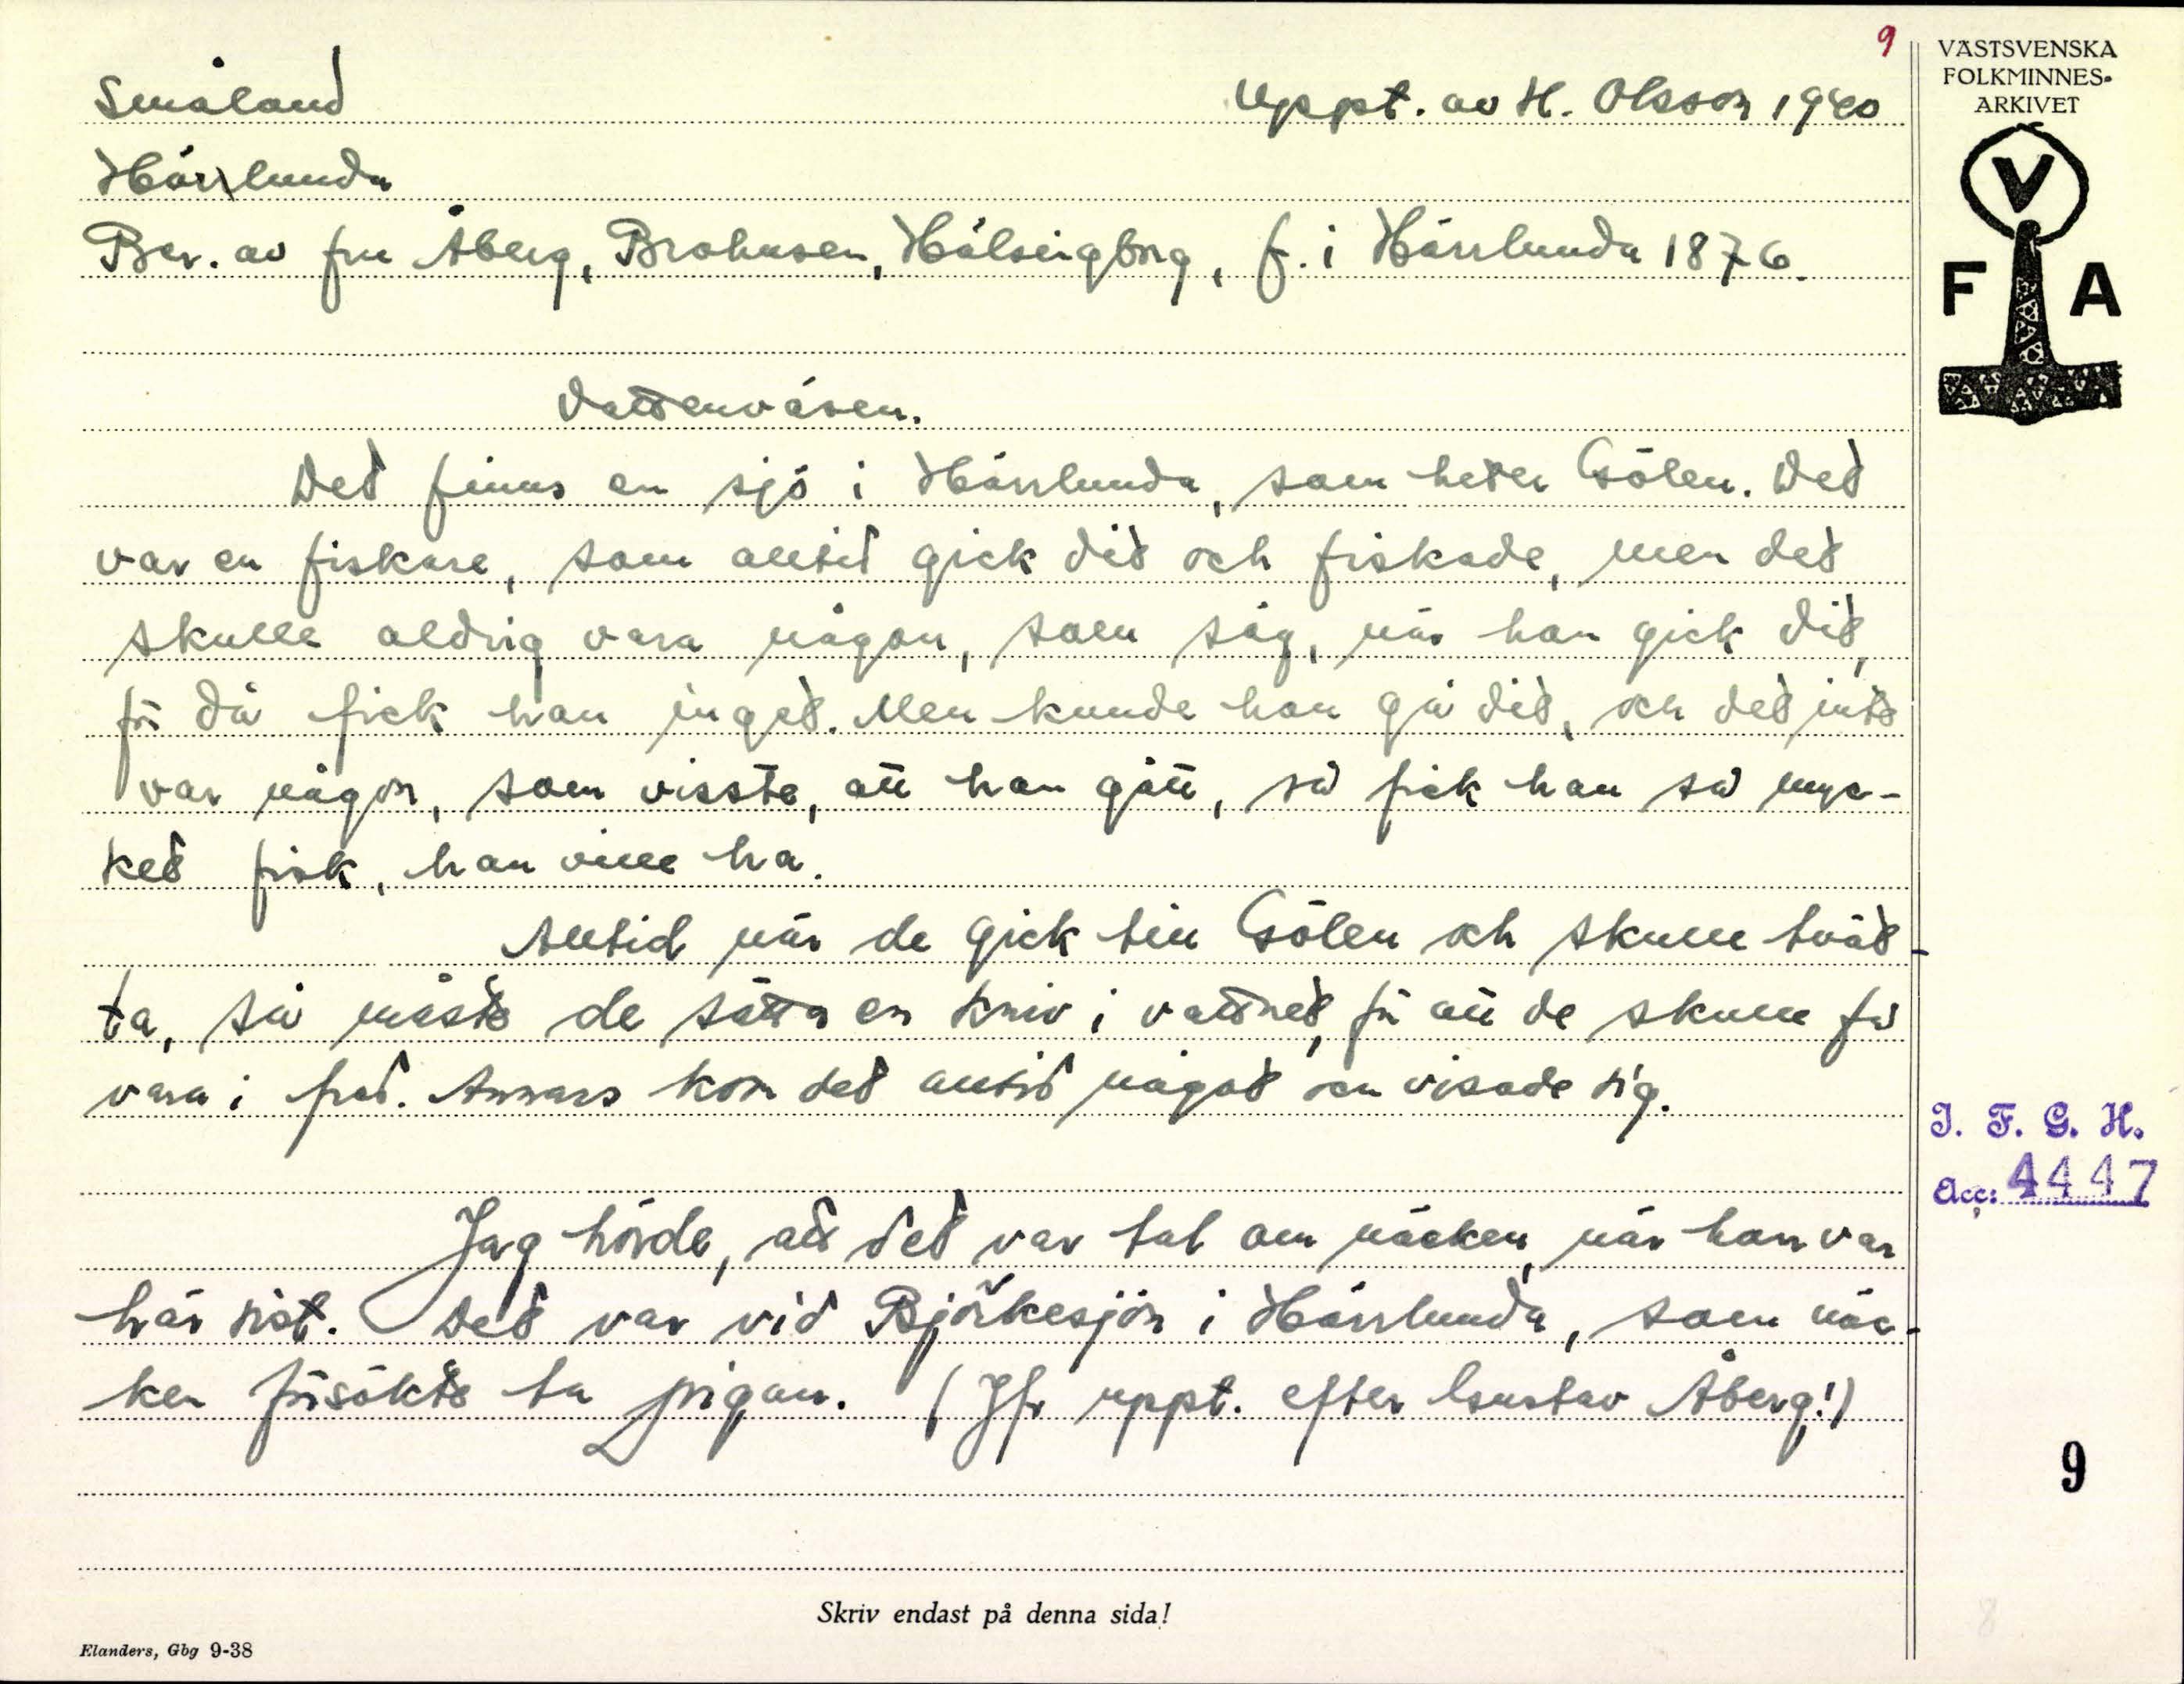 9
Småland
Uppt. av H. Olsson 1940
Härrlunda
Ber. av fru Åberg, Brohusen, Hälsingborg, f. i Härrlunda 1876.
Vattenväsen.
Det finns en sjö i Härrlunda, som heter Gölen. Det
var en fiskare, som alltid gick dit och fiskade, men det
skulle aldrig vara någon, som såg, när han gick dit,
för då fick han inget. Men kunde han gå dit, och det inte
var någon, som visste, att han gått, så fick han så myc-
ket fisk, han ville ha.
Alltid när de gick till Gölen och skulle tvät-
ta, så måste de sätta en kniv i vattnet, för att de skulle få
vara i fred. Annars kom det alltid något och visade sig.
Jag hörde, att det var tal om näcken, när han var
här sist. Det var vid Björkesjön i Härrlunda, som näc-
ken försökte ta pigan. (Jfr uppt. efter Gustav Åberg!)
Skriv endast på denna sida!
Elanders, Gbg 9-38
VÄSTSVENSKA
FOLKMINNES-
ARKIVET
V
F A
I. F. G. H.
Acc: 4447
9
8